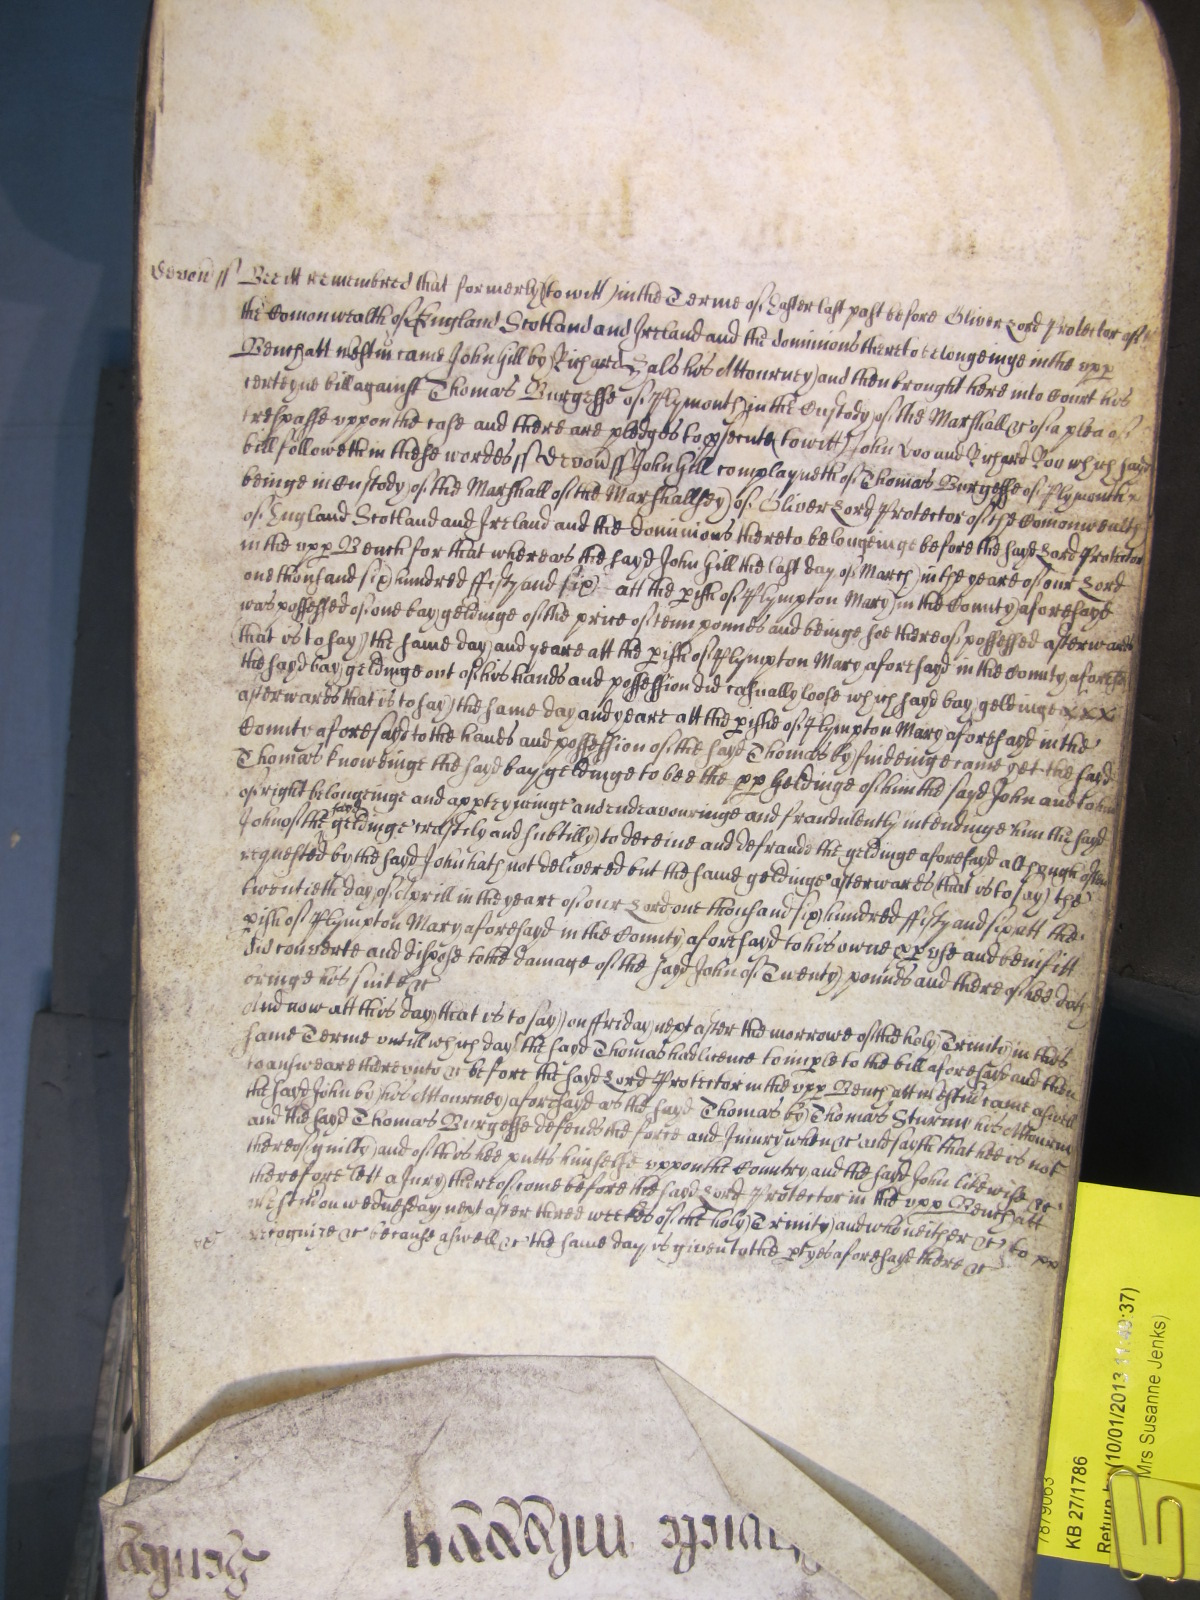 Devon ss Bee itt remembred that formerly (to witt) in the Terme of Easter last past before Oliver Lord Protector of
the Comonwealth of England Scotland and Ireland and the dominions thereto belongeinge in the upp
Bench att westm came John Gill by Richard his Attourney and then brought here into Court his
certeyne bill against Thomas Burgesse of Plymouth in the Custody of the Marshall &c of a plea of
trespasse uppon the case and there are pledges to psecute (to witt) John Doo and Richard Roo which sayd
bill followeth in these wordes ss Devon ss John Gill complayneth of Thomas Burgesse of Plymouth
beinge in Custody of the Marshall of the Marshallsey of Oliver Lord Protector of the Comonwealth
of England Scotland and Ireland and the dominions thereto belongeinge before the sayd Lord Protector
in the upp Bench for that whereas the sayd John Gill the last day of March in the yeare of our Lord
one thousand six hundred fifty and six att the pish of Plympton Mary in the County aforesayd
was possessed of one bay geldinge of the price of tenn pounds and beinge soe thereof possessed afterwards
that is to say the same day and yeare att the pish of Plympton Mary aforesayd in the County aforesd
the sayd bay geldinge out of his hands and possession did casually loose which sayd bay geldinge xxx
afterwards that is to say the same day and yeare att the pishe of Plympton Mary aforesayd in the
County aforesayd to the hands and possession of the sayd Thomas by findeinge came yet the sayd
Thomas knoweinge the sayd bay geldinge to bee the pp Geldinge of him the sayd John and to him
of right belongeinge and apperteyninge and endeavouringe and fraudulently intendinge him the sayd
John of the sayd geldinge craftely and subtilly to deceive and defraude the geldinge aforesayd although often
requested by the sayd John hath not delivered but the same geldinge afterwards that is to say the
twentieth day of Aprill in the yeare of our Lord one thousand six hundred fifty and six att the
pish of Plympton Mary aforesayd in the County aforesayd to his owne pp use and benifitt
did converte and dispose to the damage of the sayd John of Twenty pounds and thereof hee doth
bringe his suite &c
And now att this day that is to say on ffriday next after the morrowe of the holy Trinity in this
same Terme untill which day the sayd Thomas had licence to imple to the bill aforesayd and then
to answeare thereunto &c before the sayd Lord Protector in the upp Bench att westm came aswell
the sayd John by his Attourney aforesayd as the sayd Thomas by Thomas Sturmy his Attourny
and the sayd Thomas Burgesse defends the force and Iniury when &c and sayth that hee is not
thereof guilty and of this hee putts himselfe uppon the Country and the sayd John likewise &c
therefore lett a Jury thereof come before the sayd Lord Protector in the upp Bench att
westm on wednesday next after three weekes of the holy Trinity and who neither &c to
recognize &c because aswell &c the same day is given to the ptyes aforesayd there &c
KB 27/1786
Return by (10/01/2013 11:49:37)
Mrs Susanne Jenks)